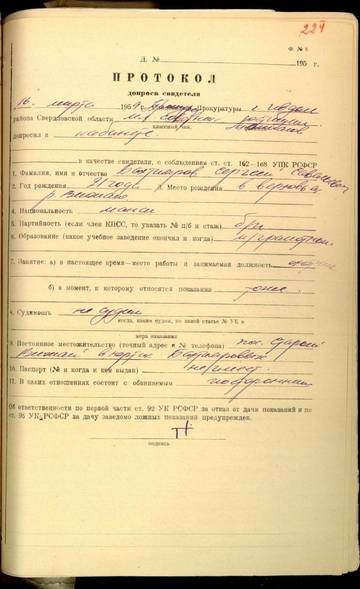 224
Ф. № 8
Д. № 195 г.
ПРОТОКОЛ
допроса свидетеля
16 марта 1959 г. Прокуратуры г. Ивдель
района Свердловской области мл. советник юстиции
классный чин,
допросил в кабинете
в качестве свидетеля, с соблюдением ст. ст. 162—168 УПК РСФСР
1. Фамилия, имя и отчество Бахтияров Сергей Савельевич
2. Год рождения 3. Место рождения в верховья
р. Вижай
4. Национальность манси
5. Партийность (если член КПСС, то указать № п/б и стаж) б/п
6. Образование (какое учебное заведение окончил и когда) неграмотный
7. Занятие: а) в настоящее время—место работы и занимаемая должность
б) в момент, к которому относятся показания тоже
8. Судимость не судим
когда, каким судом, по какой статье УК и
мера наказания
9. Постоянное местожительство (точный адрес и № телефона) пос.
Вижай в юртах Бахтияровых
10. Паспорт (№ и когда и кем выдан) не имеет
11. В каких отношениях состоит с обвиняемым посторонний
Об ответственности по первой части ст. 92 УК РСФСР за отказ от дачи показаний и по
ст. 95 УК РСФСР за дачу заведомо ложных показаний предупрежден.
подпись